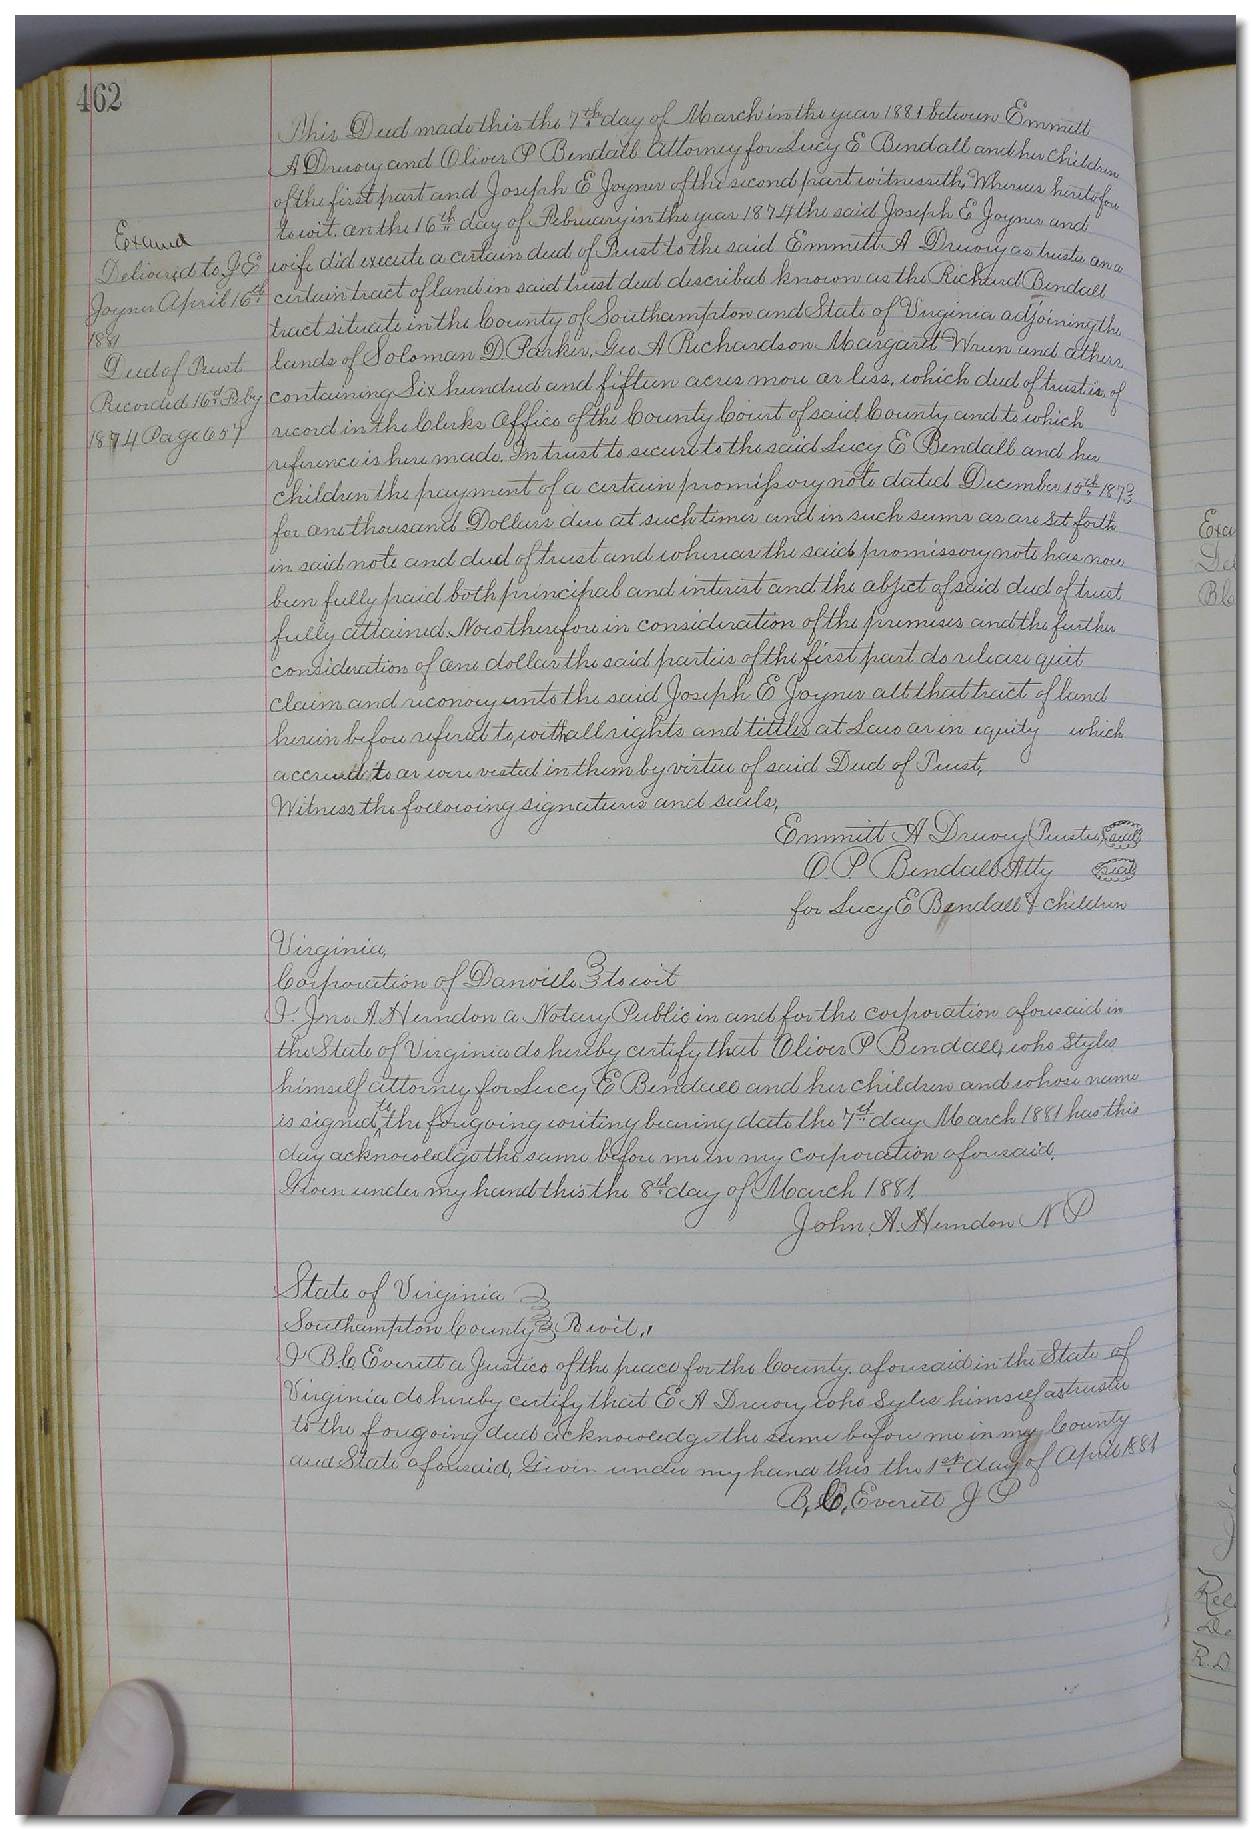 462
This Deed made this the 7th day of March in the year 1881 between Emmett
A Drewry and Oliver P Bendall Attorney for Lucy E Bendall and her children
of the first part and Joseph E Joyner of the second part witnesseth, Whereas heretofore
to wit. on the 16th day of February in the year 1874 the said Joseph E Joyner and
wife did execute a certain deed of Trust to the said Emmett A Drewry as trustee on a
certain tract of land in said trust deed described known as the Richard Bendall
tract situate in the County of Southampton and State of Virginia adjoining the
lands of Soloman D Parker, Geo A Richardson Margaret Wren and others,
containing Six hundred and fifteen acres more or less, which deed of trust is of
record in the Clerks Office of the County Court of said County and to which
reference is here made. In trust to secure to the said Lucy E Bendall and her
children the payment of a certain promissory note dated December 15th 1873
for one thousand Dollars due at such times and in such sums as are set forth
in said note and deed of trust and whereas the said promissory note has now
been fully paid both principal and interest and the object of said deed of trust
fully attained, Now therefore in consideration of the premises and the further
consideration of one dollar the said parties of the first part do release quit
claim and reconvey unto the said Joseph E Joyner all that tract of land
herein before refered to, with all rights and tittles at Law or in equity which
accrued to or were vested in them by virtue of said Deed of Trust,
Witness the following signatures and seals,
Emmitt A Drewry (Trustee) seal
O. P Bendall Atty seal
for Lucy E Bendall & children
Virginia,
Corporation of Danville } to wit
I Jno A. Herndon a Notary Public in and for the corporation aforesaid in
the State of Virginia do hereby certify that Oliver P Bendall, who styles
himself attorney for Lucy E Bendall and her children and whose name
is signed to the forgoing writing bearing date the 7th day March 1881 has this
day acknowledge the same before me in my corporation aforesaid,
Given under my hand this the 8th day of March 1881,
John, A. Herndon N P
State of Virginia
Southampton County } To wit,
I B. C Everett a Justice of the peace for the County aforesaid in the State of
Virginia do hereby certify that E A Drewry who Syles himself as trustee
to the forgoing deed acknowledge the same before me in my County
and State aforesaid, Given under my hand this the 1st day of April 1881
B, C, Everett J P
Examd
Delivered to J E
Joyner April 16th
1881
Deed of Trust
Recorded 16th Feby
1874 Page 657
Exa
Del
B C
Rec
De
R. D